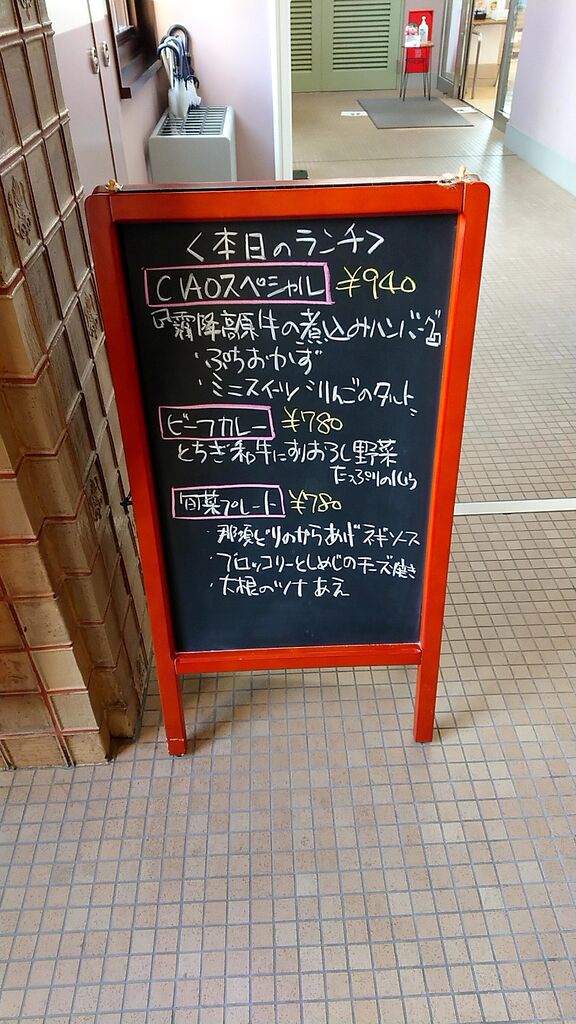 <本日のランチ>
CIAOスペシャル ¥940
霧降高原牛の煮込みハンバーグ
・ぷちおかず
・ミニスイーツ:りんごのタルト
ビーフカレー ¥780
とちぎ和牛にすりおろし野菜
たっぷりのルウ
旬菜プレート ¥780
・那須どりのからあげ ネギソース
・ブロッコリーとしめじのチーズ焼き
・大根のツナあえ